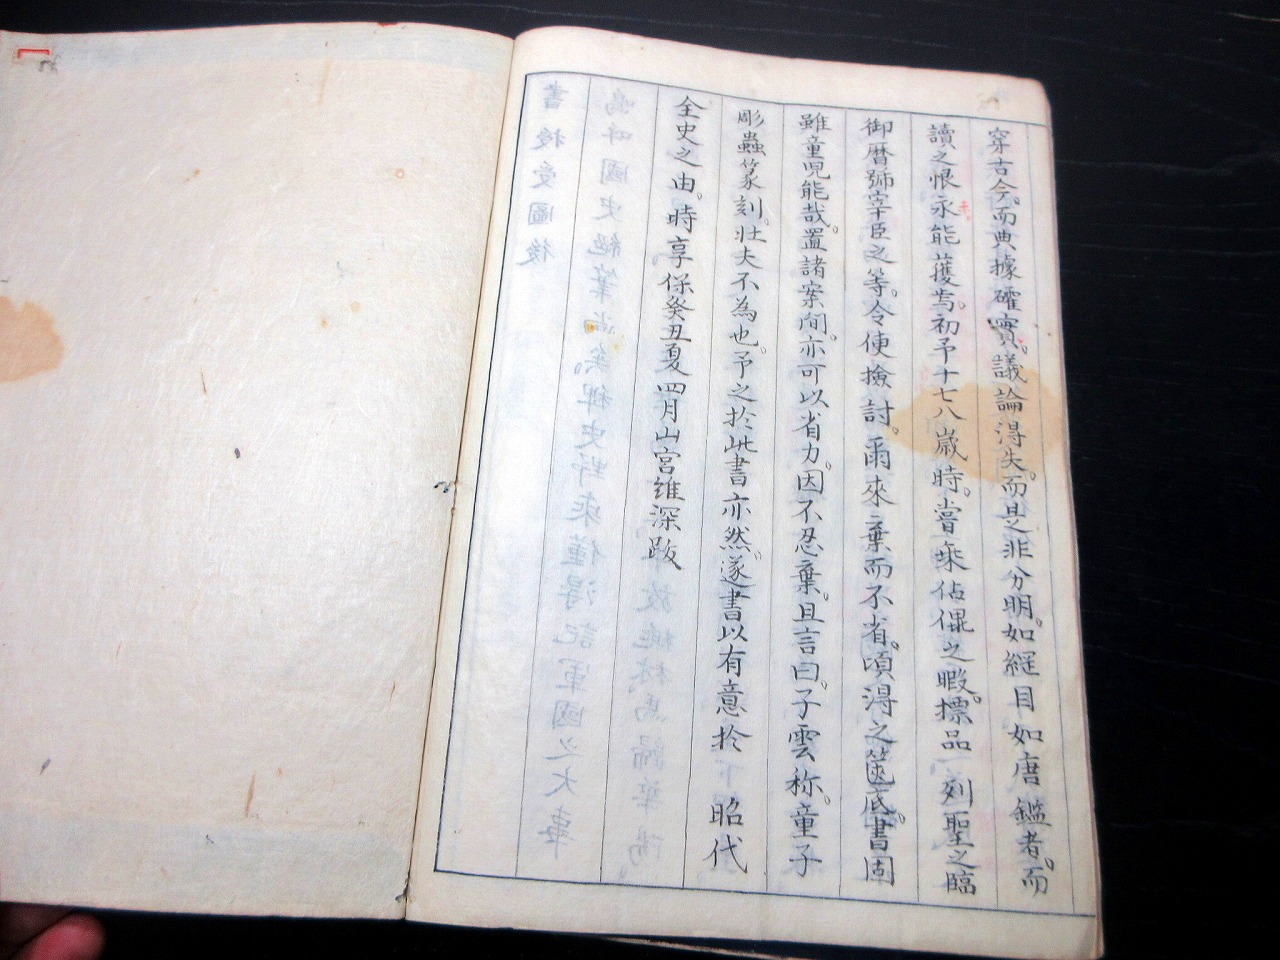 穿古今。而典據確實。議論得失。而是非分明。如綱目如唐鑑者。而
讀之恨未永能獲焉。初予十七八歲時。嘗乘佔倕之暇。標品 列聖之臨
御曆號宰臣之等。令使撿討。爾來棄而不省。頃得之篋底。書固
雖童兒能哉。置諸案間。亦可以省力。因不忍棄。且言曰。子雲称。童子
彫蟲篆刻。壯夫不為也。予之於此書亦然。遂書以有意於 昭代
全史之由。時享保癸丑夏四月山宮維深跋